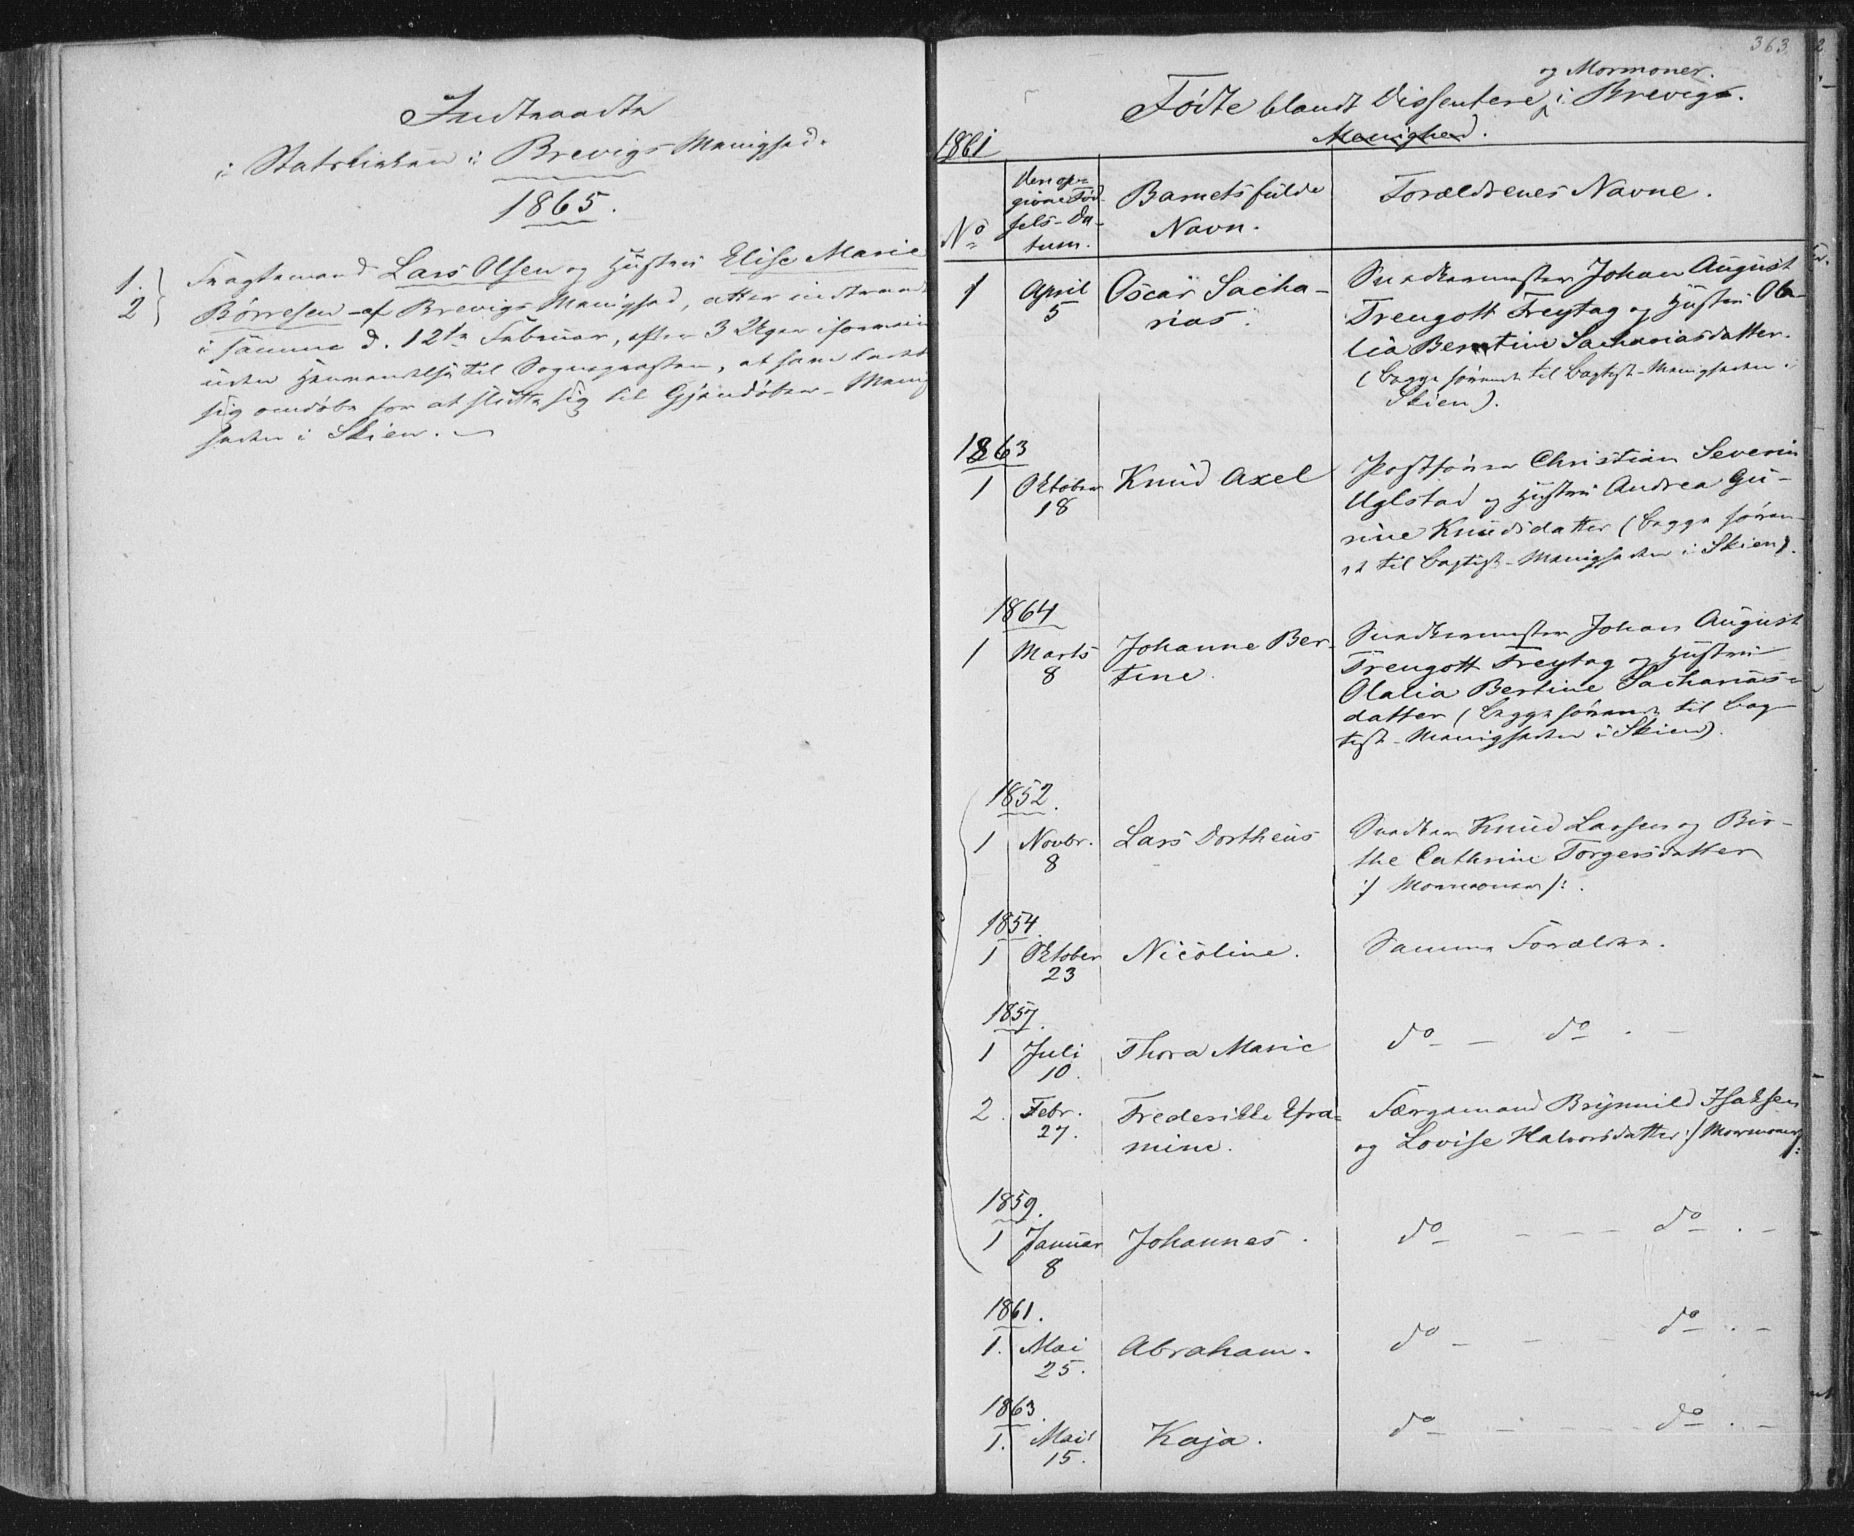 Indtraadte
i Statskirken i Brevigs Menighed.
1865.
1. Fragtemand Lars Olsen og Hustru Elise Marie
2 Børresen af Brevigs Menighed, atter indtraadt
i samme d. 12te Februar, efter 3 Uger iforveien
uden Henvendelse til Sognepræsten, at have ladet
sig omdøbe for at slutte sig til Gjendøber-Menig
heden i Skien.
363
og Mormoner.
Fødte blandt Dissentere i Brevig.
Menighed.
1861
No
Den op-
givne Fød
sels-Da-
tum.
Barnets fulde
Navn.
Forældrenes Navne.
1 April 5 Oscar Sacha-
rias.
Snedkermester Johan August
Trengott Freytag og Hustru Ola-
lia Berntine Sachariasdatter.
(begge hørende til Baptist-Menigheden i
Skien).
1863
1 Oktober 18 Knud Axel
Postfører Christian Severin
Uglstad og Hustru Andrea Gu-
rine Knudsdatter (begge høren-
de til Baptist-Menigheden i Skien).
1864
1 Marts 8 Johanne Ber-
tine.
Snedkermester Johan August
Trengott Freytag og Hustru
Olalia Bertine Sacharias-
datter (begge hørende til Bap-
tist-Menigheden i Skien).
1852.
1 Novbr. 8 Lars Dortheus
Snedker Knud Larsen og Bir-
the Cathrine Torgersdatter
:/ Mormoner /: .
1854.
1 Oktober 23 Nicoline.
Samme Forældre.
1857.
1 Juli 10. Thora Marie
do - do . -
2. Febr. 27. Frederikke Efra-
mine.
Færgemand Brynnild Isaksen
og Lovise Halvorsdatter :/ Mormoner /:
1859.
1 Januar 8 Johannes.
do - - - do . -
1861.
1. Mai 25. Abraham.
do - - - do . -
1863.
1. Mai 15. Kaja.
do - - - do . -